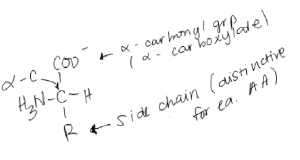 COO⁻ ← α-carbonyl grp
(α-carboxylate)
α-C
H₃N-C-H
R ← side chain (distinctive
for ea. AA)